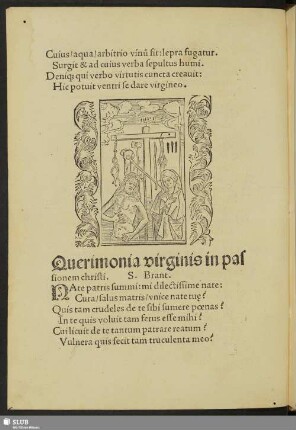 Cuius/aqua/arbitrio vinũ fit:lepra fugatur.
Surgit & ad cuius verba sepultus humi.
Deniqȝ qui verbo virtutis cuncta creauit:
Hic potuit ventri se dare virgineo.
Querimonia virginis in pas
sionem christi. S. Brant.
NAte patris summi:mi dilectissime nate:
Cura/salus matris/vnice nate tuę?
Quis tam crudeles de te sibi sumere pœnas?
In te quis voluit tam ferus esse mihi?
Cui licuit de te tantum patrare reatum?
Vulnera quis fecit tam truculenta meo?
SLUB